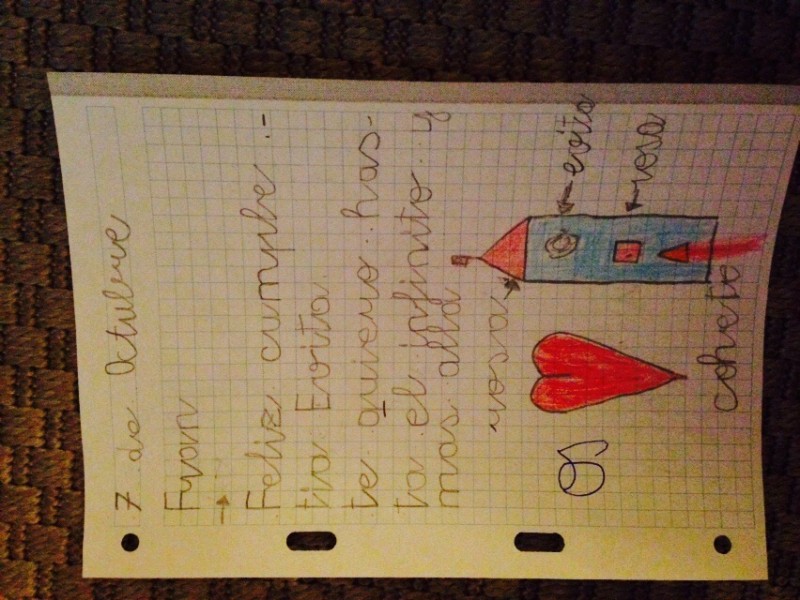 7 de Octubre
Feliz cumple.-
tia Evita
te quiero has-
ta el infinito y
mas alla
rosa
evita
rosa
cohete